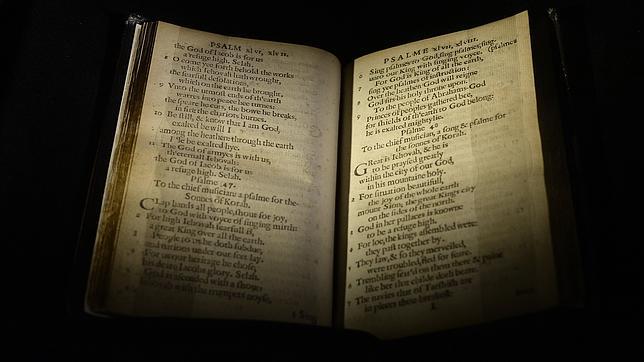 PSALM xlvi, xlvii.
the God of Iacob is for us
a refuge high. Selah.
8 O come yee forth behold the works
which Iehovah hath wrought,
the fearfull desolations,
which on the earth he brought,
9 Vnto the utmost ends of th'earth
warres into peace hee turnes:
the speare he cuts, the bowe he breaks,
in fire the chariots burnes.
10 Be still, & know that I am God,
exalted be will I
among the heathen through the earth
I'le be exalted hye.
11 The God of armyes is with us,
th'eternall Iehovah:
the God of Iacob is for us
a refuge high. Selah.
Psalme 47.
To the chief musician: a psalme for the
Sonnes of Korah.
Clap hands all people, shout for joy,
to God with voyce of singing mirth:
2 For high Iehovah fearfull is,
a great King over all the earth.
3 People to us he doth subdue,
and nations under our feet lay.
4 For us our heritage he chose,
his deare Iacobs glory. Selah.
5 God is ascended with a shout:
Iehovah with the trumpets noyse.
6 Sing
PSALME xlvii, xlviii.
6 Sing psalmes to God, sing psalmes, sing
unto our King with singing voyce. (psalmes
7 For God is King of all the earth,
sing yee psalmes of instruction:
8 Over the heathen God will reigne
God sits his holy throne upon.
9 To the people of Abrahams God
Princes of peoples gathered bee,
for shields of th'earth to God belong:
he is exalted mightylie.
Psalme 48
To the chief musician, a song & psalme for
the sonnes of Korah.
Great is Iehovah, & he is
to be praysed greatly
within the city of our God,
in his mountaine holy.
2 For situation beautifull,
the joy of the whole earth
mount Sion; the great Kings city
on the sides of the north.
3 God in her pallaces is knowne
to be a refuge high.
4 For loe, the kings assembled were:
they past together by.
5 They saw, & so they merveiled,
were troubled, fled for feare.
6 Trembling seiz'd on them there & paine
like her that childe doth beare.
7 The navies that of Tarshish are
in pieces thou breakest: